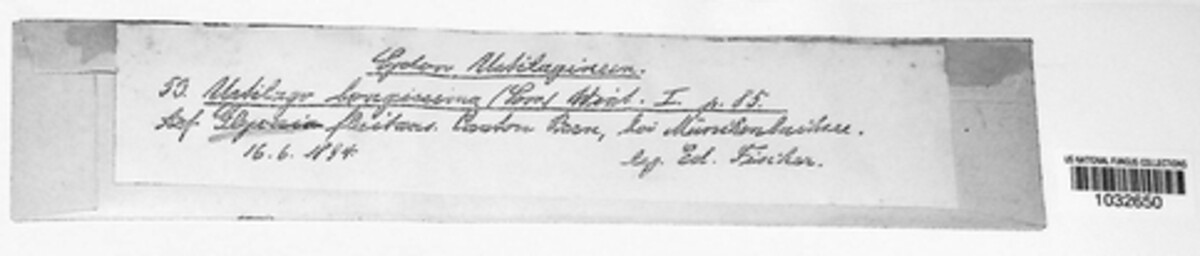 Sydow, Ustilagineen.
53. Ustilago longissima (Sow) Wint. I. p. 85.
Auf Glyceria fluitans. Canton Bern, bei Münchenbuchsee.
16. 6. 1894.
leg. Ed. Fischer.
US NATIONAL FUNGUS COLLECTIONS
1032650